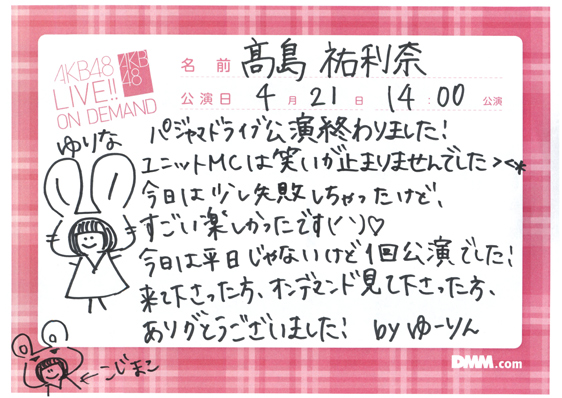 AKB48
LIVE!!
ON DEMAND
AKB
48
名前 髙島 祐利奈
公演日 4月21日 14:00公演
ゆりな
パジャマドライブ公演終わりました!
ユニットMCは笑いが止まりませんでした><*
今日は少し失敗しちゃったけど、
すごい楽しかったです(^^)♡
今日は平日じゃないけど1回公演でした!
来て下さった方、オンデマンド見て下さった方、
ありがとうございました! byゆーりん
←こじまこ
DMM.com